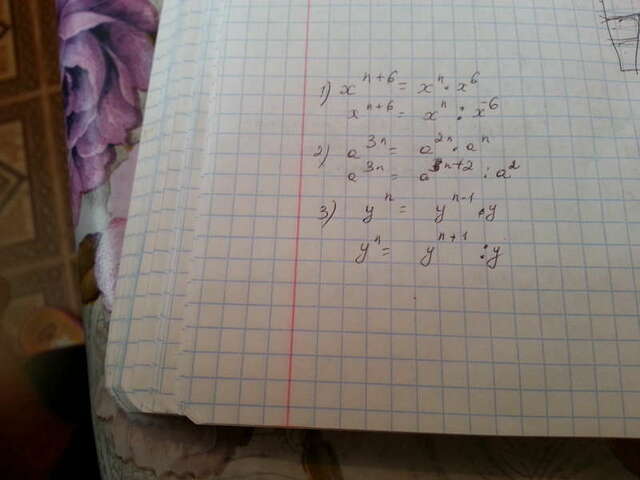 1) x^{n+6} = x^n · x^6
x^{n+6} = x^n : x^{-6}
2) a^{3n} = a^{2n} · a^n
a^{3n} = a^{3n+2} : a^2
3) y^n = y^{n-1} · y
y^n = y^{n+1} : y